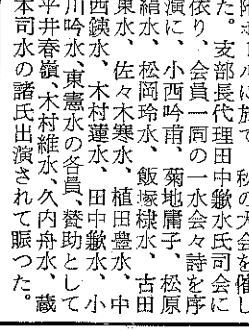 に於て、秋の大会を催し
た。支部長代理田中歗水氏司会に
依り、会員一同の一水会々詩を序
演に、小西吟甫、菊地庸子、松原
絹水、松岡玲水、飯塚棣水、古田
東水、佐々木寒水、植田豊水、中
西銕水、木村蓮水、田中歗水、小
川吟水、東憲水の各員、賛助として
平井春嶺、木村維水、久内舟水、蔵
本司水の諸氏出演されて賑つた。